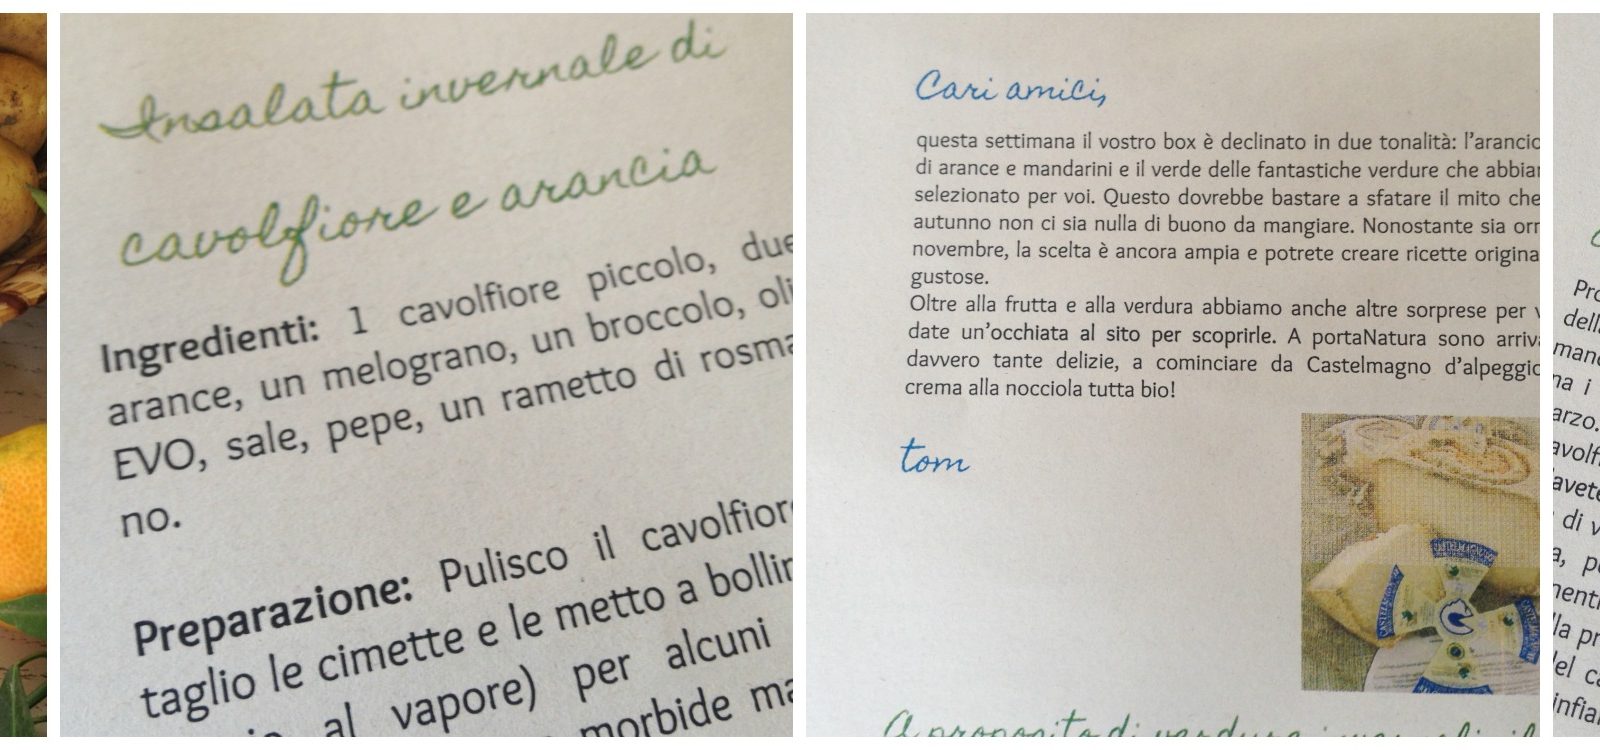 Insalata invernale di
cavolfiore e arancia
Ingredienti: 1 cavolfiore piccolo, due
arance, un melograno, un broccolo, oli
EVO, sale, pepe, un rametto di rosma
no.
Preparazione: Pulisco il cavolfior
taglio le cimette e le metto a bollir
al vapore) per alcuni
morbide ma
Cari amici,
questa settimana il vostro box è declinato in due tonalità: l'arancio
di arance e mandarini e il verde delle fantastiche verdure che abbia
selezionato per voi. Questo dovrebbe bastare a sfatare il mito che
autunno non ci sia nulla di buono da mangiare. Nonostante sia orr
novembre, la scelta è ancora ampia e potrete creare ricette origina
gustose.
Oltre alla frutta e alla verdura abbiamo anche altre sorprese per v
date un'occhiata al sito per scoprirle. A portaNatura sono arriv
davvero tante delizie, a cominciare da Castelmagno d'alpeggio
crema alla nocciola tutta bio!
tom
A proposito di verdure
Pro
dell
man
na i
arzo.
avolf
avete
di v
a, p
menti
la pr
el c
infia